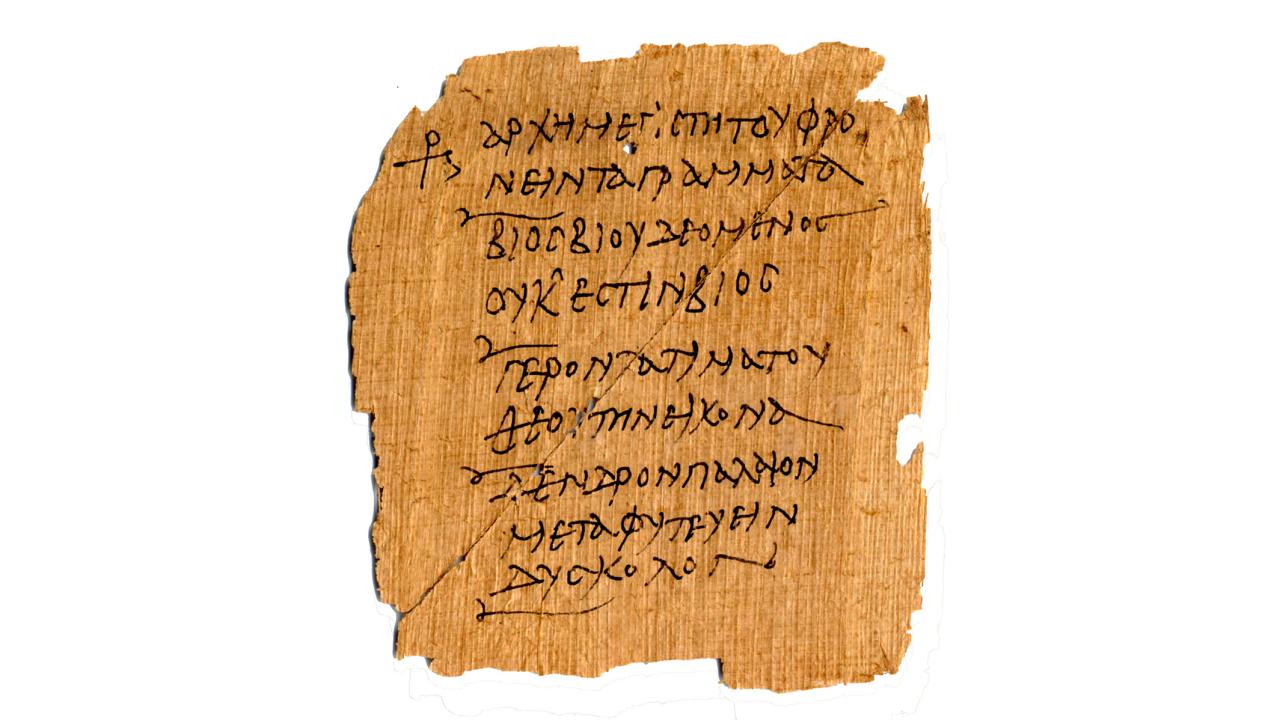 ⳨ ΑΡΧΗΜΕΓΙCΤΗΤΟΥΦΡΟ
ΝΕΗΝΤΑΓΡΑΜΜΑΤΑ
ΒΙΟCΒΙΟΥΔΕΟΜΕΝΟC
ΟΥΚΕCΤΙΝΒΙΟC
ΓΕΡΟΝΤΑΤΙΜΑΤΟΥ
ΘΕΟΥΤΗΝΕΙΚΟΝΑ
ΔΕΝΔΡΟΝΠΑΛΑΙΟΝ
ΜΕΤΑΦΥΤΕΥΕΗΝ
ΔΥCΚΟΛΟΝ